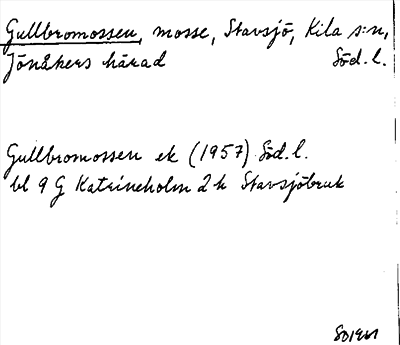 Gullbromossen, mosse, Stavsjö, Kila s:n,
Jönåkers härad Söd. l.
Gullbromossen ek (1957) Söd. l.
bl 9 G Katrineholm 2 h Stavsjöbruk